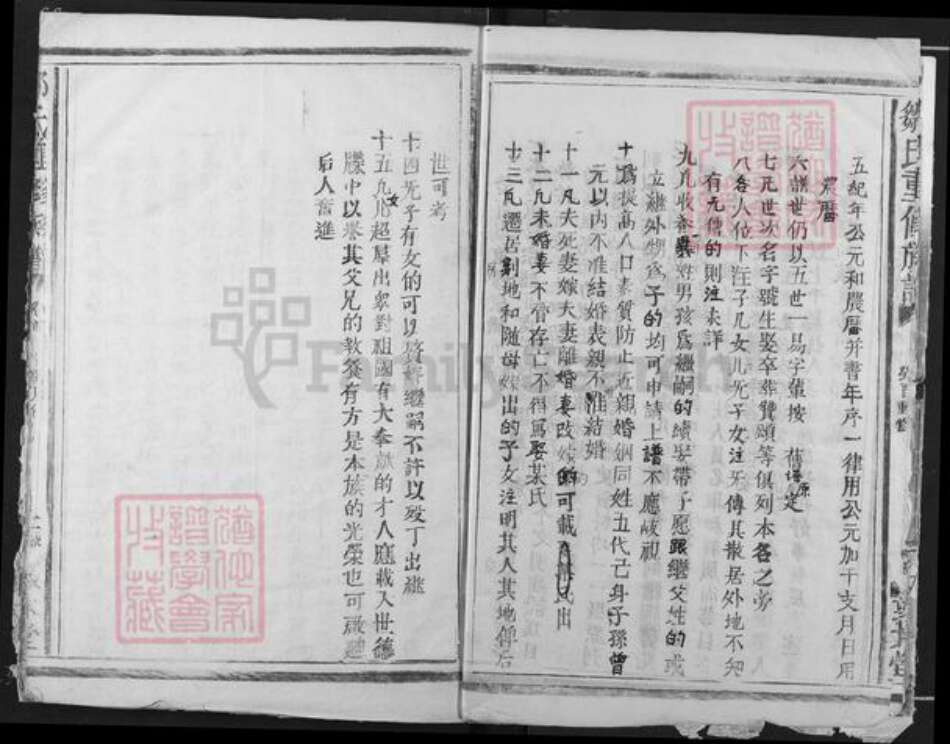 鄒氏重修族譜
五紀年公元和農曆并書年序一律用公元加干支月日用
農曆
六譜世仍以五世一易字輩按舊譜原定
七凡世次名字號生娶卒葬贊頌等俱列本各之旁
八各人位下注子几女几无子女注无傳其散居外地不知
有无傳的則注未詳
九凡收養異姓男孩爲繼嗣的續娶帶子愿跟繼父姓的或
立繼外甥爲子的均可申請上譜不應歧視
十爲提高人口素質防止近親婚姻同姓五代己身子孫曾
元以内不准結婚表親不准結婚
十一凡夫死妻嫁夫妻離婚妻改嫁的可載 氏出
十二凡未婚妻不管存亡不得寫娶某氏
十三凡遷居別地和随母嫁出的子女注明其人其地俾后
世可考
十四无子有女的可以贅婿繼嗣不許以殁丁出繼
十五凡兒女超羣出衆對祖國有大奉献的才人應載入世德
牒中以誉其父兄的教養有方是本族的光榮也可啟迪
后人奮進
FamilySearch